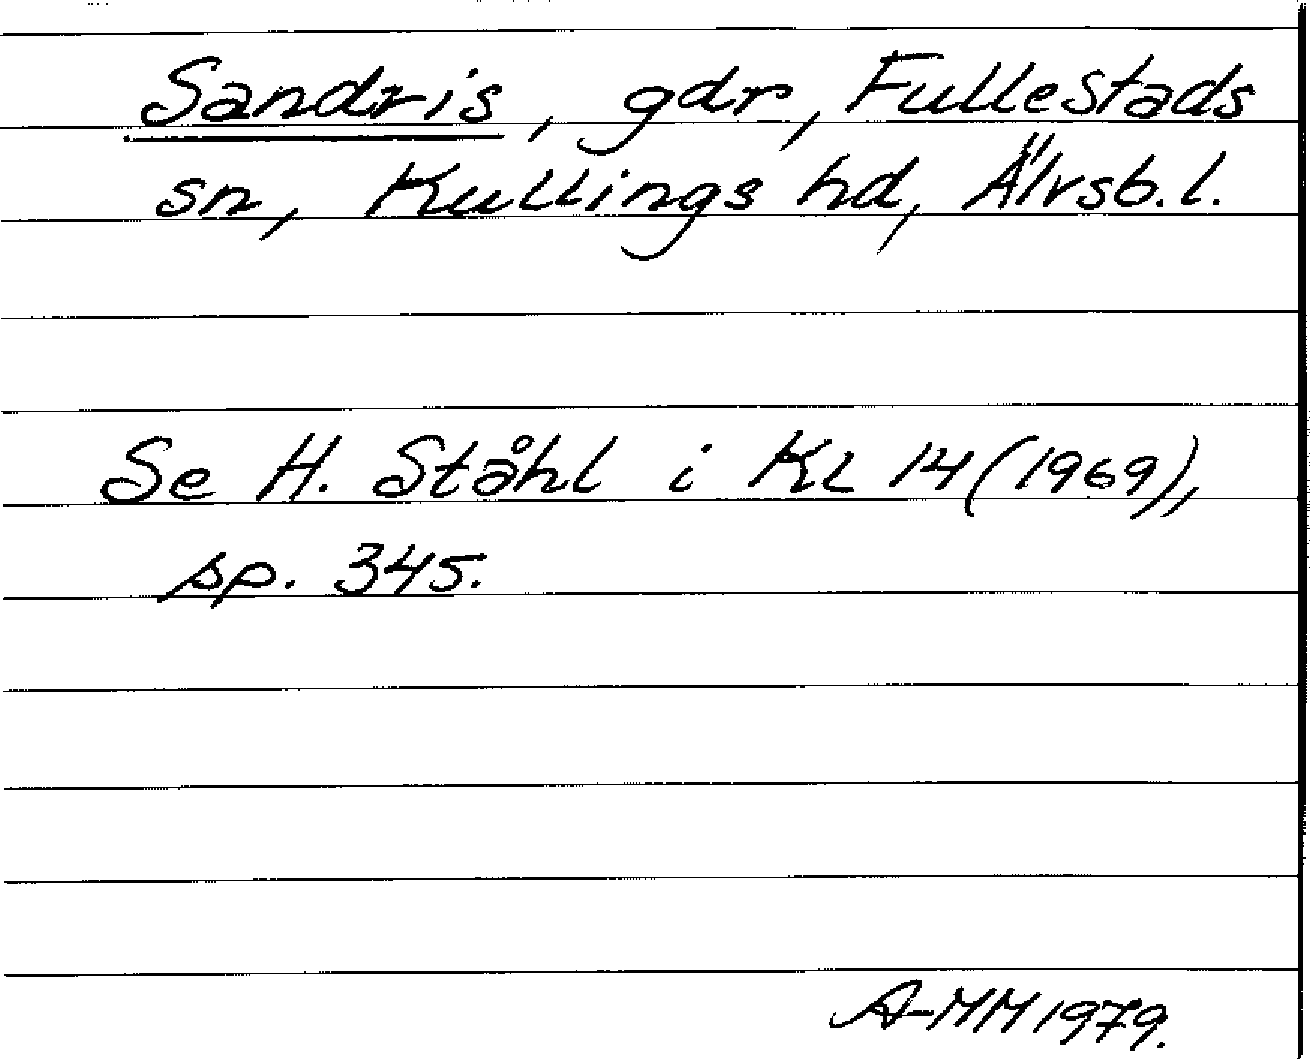 Sandris, gdr, Fullestads
sn, Kullings hd, Älvsb.l.
Se H. Ståhl i KL 14 (1969),
sp. 345.
A-MM 1979.